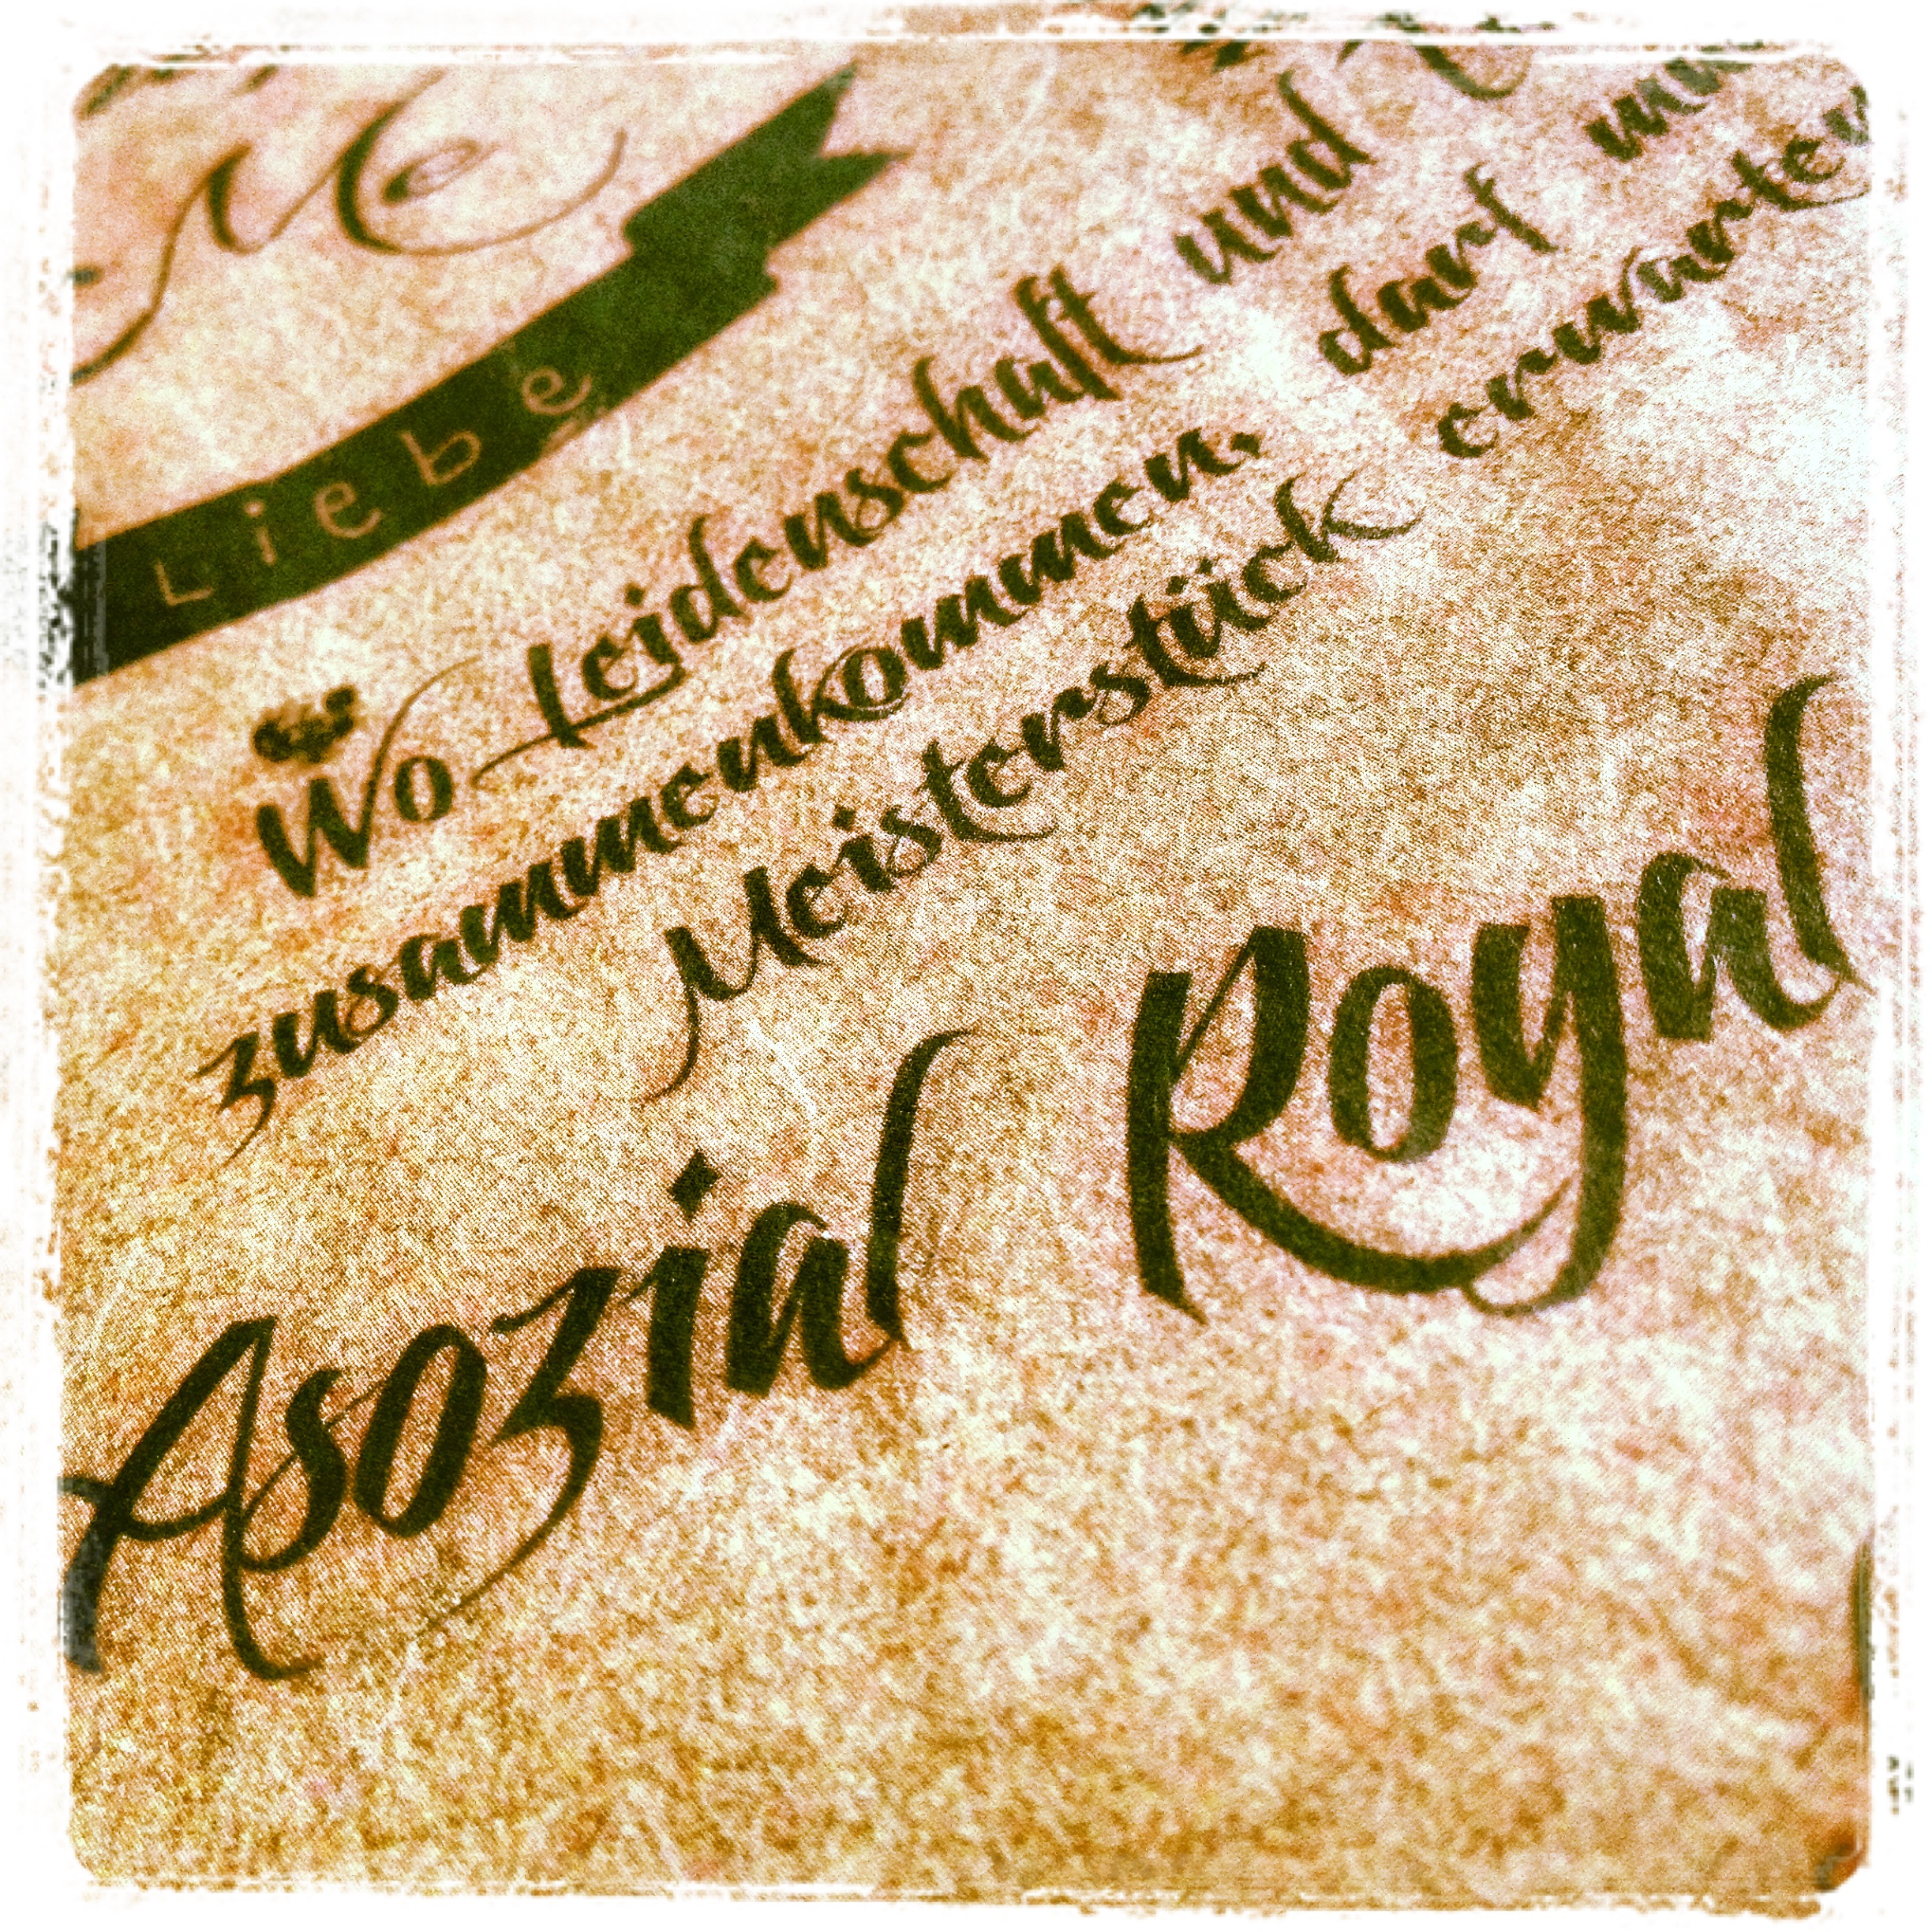 Liebe
Wo Leidenschaft und
zusammenkommen, darf
Meisterstück erwarten
Asozial Royal